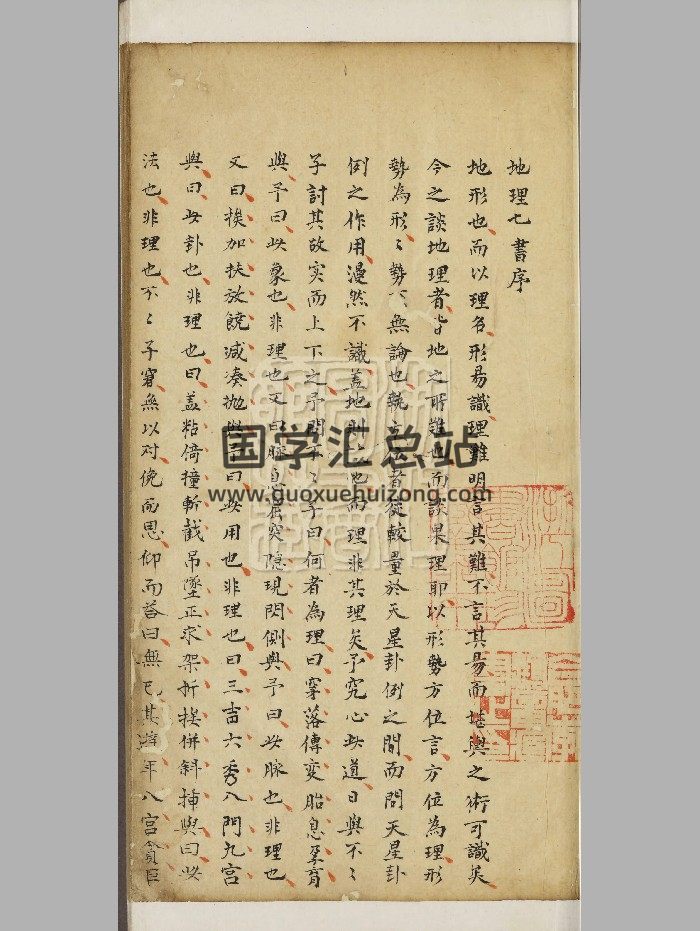 地理七書序
地形也而以理名形易識理難明言其難不言其易而堪輿之術可識矣
今之談地理者皆地之所難也而談果理耶以形勢方位言方位為理形
勢為形〻勢無論也執方位者從較量於天星卦例之間而問天星卦
例之作用漫然不識蓋地則地而理非其理矣予究心此道日與不〻
子討其故实而上下之予問不〻子曰何者為理曰穿落傳变胎息孕育
與予曰此象也非理也又曰脉息窟突隐現閃側與予曰此脉也非理也
又曰挨加扶放饒減凑抛與予曰此用也非理也曰三吉六秀八門九宮
與曰此卦也非理也曰蓋粘倚撞斬截吊墜正求架折挨併斜插與曰此
法也非理也不〻子窘無以对俛而思仰而荅曰無已其年八宮貪巨
国学汇总站
www.guoxuehuizong.com